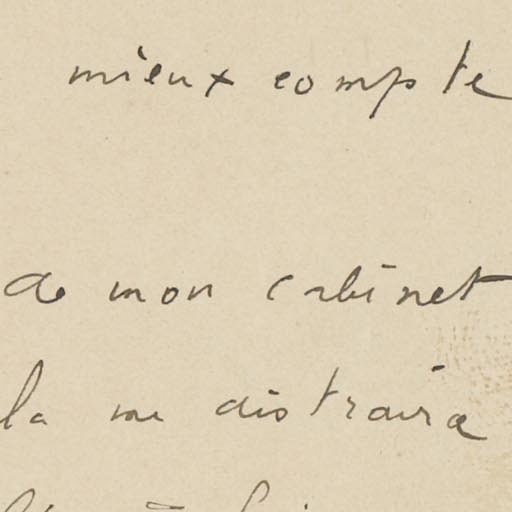 mieux compte
de mon cabinet
la me distraire